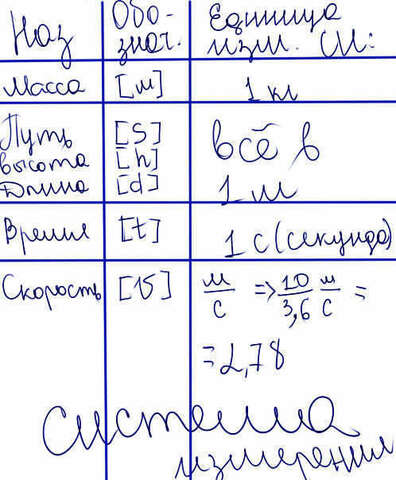 Наз
Обо-
знач.
Единица
изм. СИ:
Масса
[m]
1 кг
Путь
высота
Длина
[S]
[h]
[d]
всё в
1 м
Время
[t]
1 с (секунда)
Скорость
[υ]
м/с => 10/3,6 м/с =
= 2,78
Система
измерения